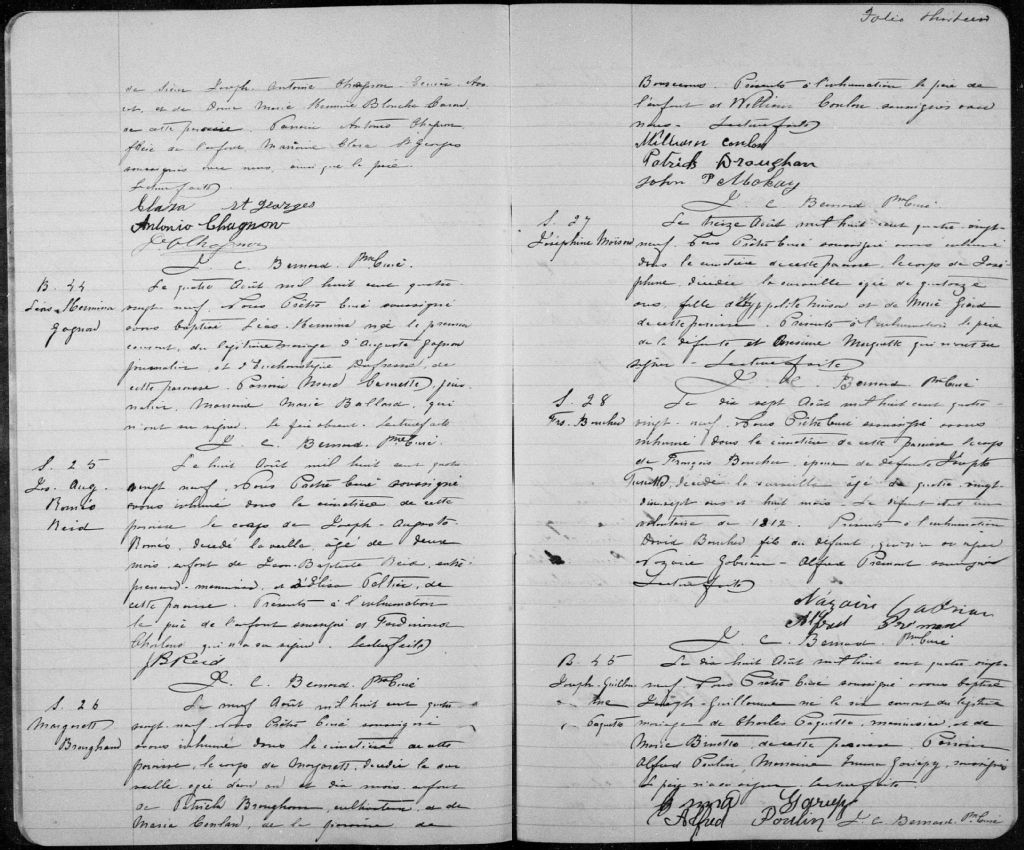 de Sieur Joseph Antoine Chagnon
et de Dame Marie Herminie Blanche Caron
de cette paroisse. Parrain Antonio Chagnon
frère de l'enfant, Marraine Clara St Georges
soussignés avec nous, ainsi que le père.
Lecture faite.
Clara St Georges
Antonio Chagnon
J. A. Chagnon
J. C. Bernard. Ptre Curé.
B. 44
Léas - Hermina
Gagnon
Le quatre Août mil huit cent quatre
vingt neuf, Nous Prêtre Curé soussigné
avons baptisé Léas-Hermina née le premier
courant, du légitime mariage d'Auguste Gagnon
journalier et d' Dufresne, de
cette paroisse. Parrain
Marraine Marie Ballard, qui
n'ont su signer. Le père absent. Lecture faite
J. C. Bernard. Ptre Curé.
S. 25
Js. Aug.
Roméo
Reid
Le huit Août mil huit cent quatre
vingt neuf, Nous Prêtre Curé soussigné
avons inhumé dans le cimetière de cette
paroisse le corps de Joseph-Auguste
Roméo, décédé la veille, âgé de deux
mois, enfant de Jean-Baptiste Reid, entre
preneur-menuisier, et d'Elisa Peltier, de
cette paroisse. Présents à l'inhumation
le père de l'enfant soussigné et Ferdinand
Charland qui n'a su signer. Lecture faite
J B Reid
J. C. Bernard. Ptre Curé
S. 26
Margarett
Broughan
Le neuf Août mil huit cent quatre
vingt-neuf, Nous Prêtre Curé soussigné
avons inhumé dans le cimetière de cette
paroisse, le corps de Margarett, décédée la sur
veille, agée d'un an et dix mois, enfant
de Patrick Broughan, cultivateur, et de
Maria Conlan, de la paroisse de
Folio thirteen
Présents à l'inhumation le père de
l'enfant et William Conlan soussignés avec
nous - Lecture faite
William Conlan
Patrick Broughan
John P McKay
J. C. Bernard Ptre Curé
S. 27
Joséphine Moison
Le treize Août mil huit cent quatre-vingt-
neuf, Nous Prêtre Curé soussigné avons inhumé
dans le cimetière de cette paroisse, le corps de José
phine, décédée la surveille agée de quatorze
ans, fille d'Hyppolite Moison et de Marie Girard
de cette paroisse. Présents à l'inhumation le père
de la défunte et qui n'ont su
signer - Lecture faite
J. C. Bernard Ptre Curé
S. 28
Frs. Boucher
Le dix sept Août mil huit cent quatre-
vingt-neuf, Nous Prêtre Curé soussigné avons
inhumé dans le cimetière de cette paroisse le corps
de François Boucher, époux de défunte Josephte
décédé la surveille, âgé de quatre-vingt
dix sept ans et huit mois. Le défunt était un
volontaire de 1812. Présents à l'inhumation
David Boucher fils du défunt, qui n'a su signer
Nazaire - Alfred soussignés
Lecture faite
Nazaire
Alfred
J. C. Bernard Ptre Curé
B. 45
Joseph-Guillau
me
Paquette
Le dix huit Août mil huit cent quatre-vingt-
neuf, Nous Prêtre Curé soussigné avons baptisé
Joseph-Guillaume né le six courant du légitime
mariage de Charles Paquette, menuisier, et de
Marie Brunette, de cette paroisse. Parrain
Alfred Poulin Marraine Emma Gariepy, soussignés
Le père n'a su signer. Lecture faite.
Emma Gariepy
Alfred Poulin J. C. Bernard. Ptre Curé